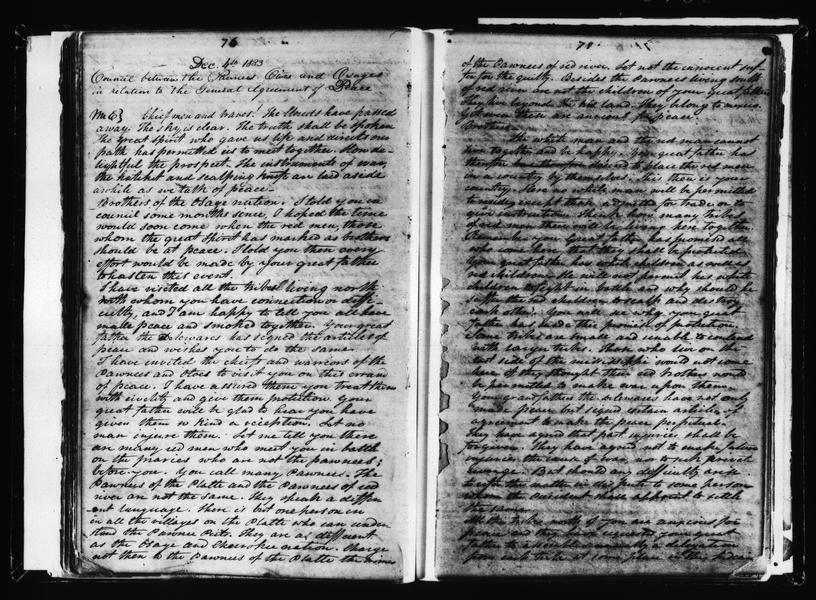 76
Dec. 4th 1833
Council between the Pawnees Otoes and Osages
in relation to the General Agreement of Peace
Mr. E} Chief men and braves! The clouds have passed
away. The sky is clear. The truth shall be spoken
The great spirit who gave us life and directs our
path has permitted us to meet together. How de-
lightful the prospect. The instruments of war,
the hatchet and scalping knife are laid aside
awhile as we talk of peace—
Brothers of the Osage nation. I told you in
council some months sence, I hoped the time
would soon come when the red men, those
whom the great Spirit has marked as brothers
should be at peace. I told you then every
effort would be made by your great father
to hasten this event.
I have visited all the tribes living north
with whom you have connection or diffi-
culty, and I am happy to tell you all have
made peace and smoked together. Your great
father the Delewares has signed the articles of
peace and wishes you to do the same.
I have invited the chiefs and warriors of the
Pawnees and Otoes to visit you on this errand
of peace. I have assured them you treat them
with civility and give them protection. Your
great father will be glad to hear you have
given them so kind a reception. Let no
man injure them. Let me tell you there
are many red men who meet you in battle
on the praries who are not the pawnees;
before you. You call many Pawnees. The
Pawnees of the Platte and the Pawnees of red
river are not the same. They speak a differ
ent language. There is but one person in
in all the villages on the Platte who can under
stand the Pawnee Picts. They are as different
as the Osage and Cherokee nation. Charge
not then to the Pawnees of the Platte the
of the Pawnees of red river. Let not the innocent suf-
fer for the guilty. Besides the Pawnees living south
of red river are not the children of your great father.
They live beyond his land. They belong to
Yet even these are anxious for peace.
Brothers
The white man and the red man cannot
live together and be happy. Your great father has
therefore determined to place the red men
in a country by themselves. This then is your
country. Here no white man will be permitted
to reside except those admitted for trade or to
give instruction. Think how many tribes
of red men there will be living here together.
Remember your Great father has promised all
who come here that they shall be protected.
Your great father has white children as well as
red children. He will not permit his white
children to fight in battle and why should he
suffer the red children to scalp and destroy
each other. You will see why your great
father has made this promise of protection.
Some tribes are small and unable to contend
with larger tribes. Those who live on the
east side of the mississippi would not come
here if they thought their red brothers would
be permitted to make war upon them.
Your grandfathers the delewares have not only
made peace but signed certain articles of
agreement to make the peace perpetual.
They have agreed that past injuries shall be
forgiven. They have agreed not to make
injuries the cause of war or to seek private
revenge. But should any difficulty arise
to refer the matter in dispute to some person
whom the President shall appoint to settle
the same.
All the tribes north of you are anxious for
peace and they have requested your great
father to
from each tribe at some place in the Indian